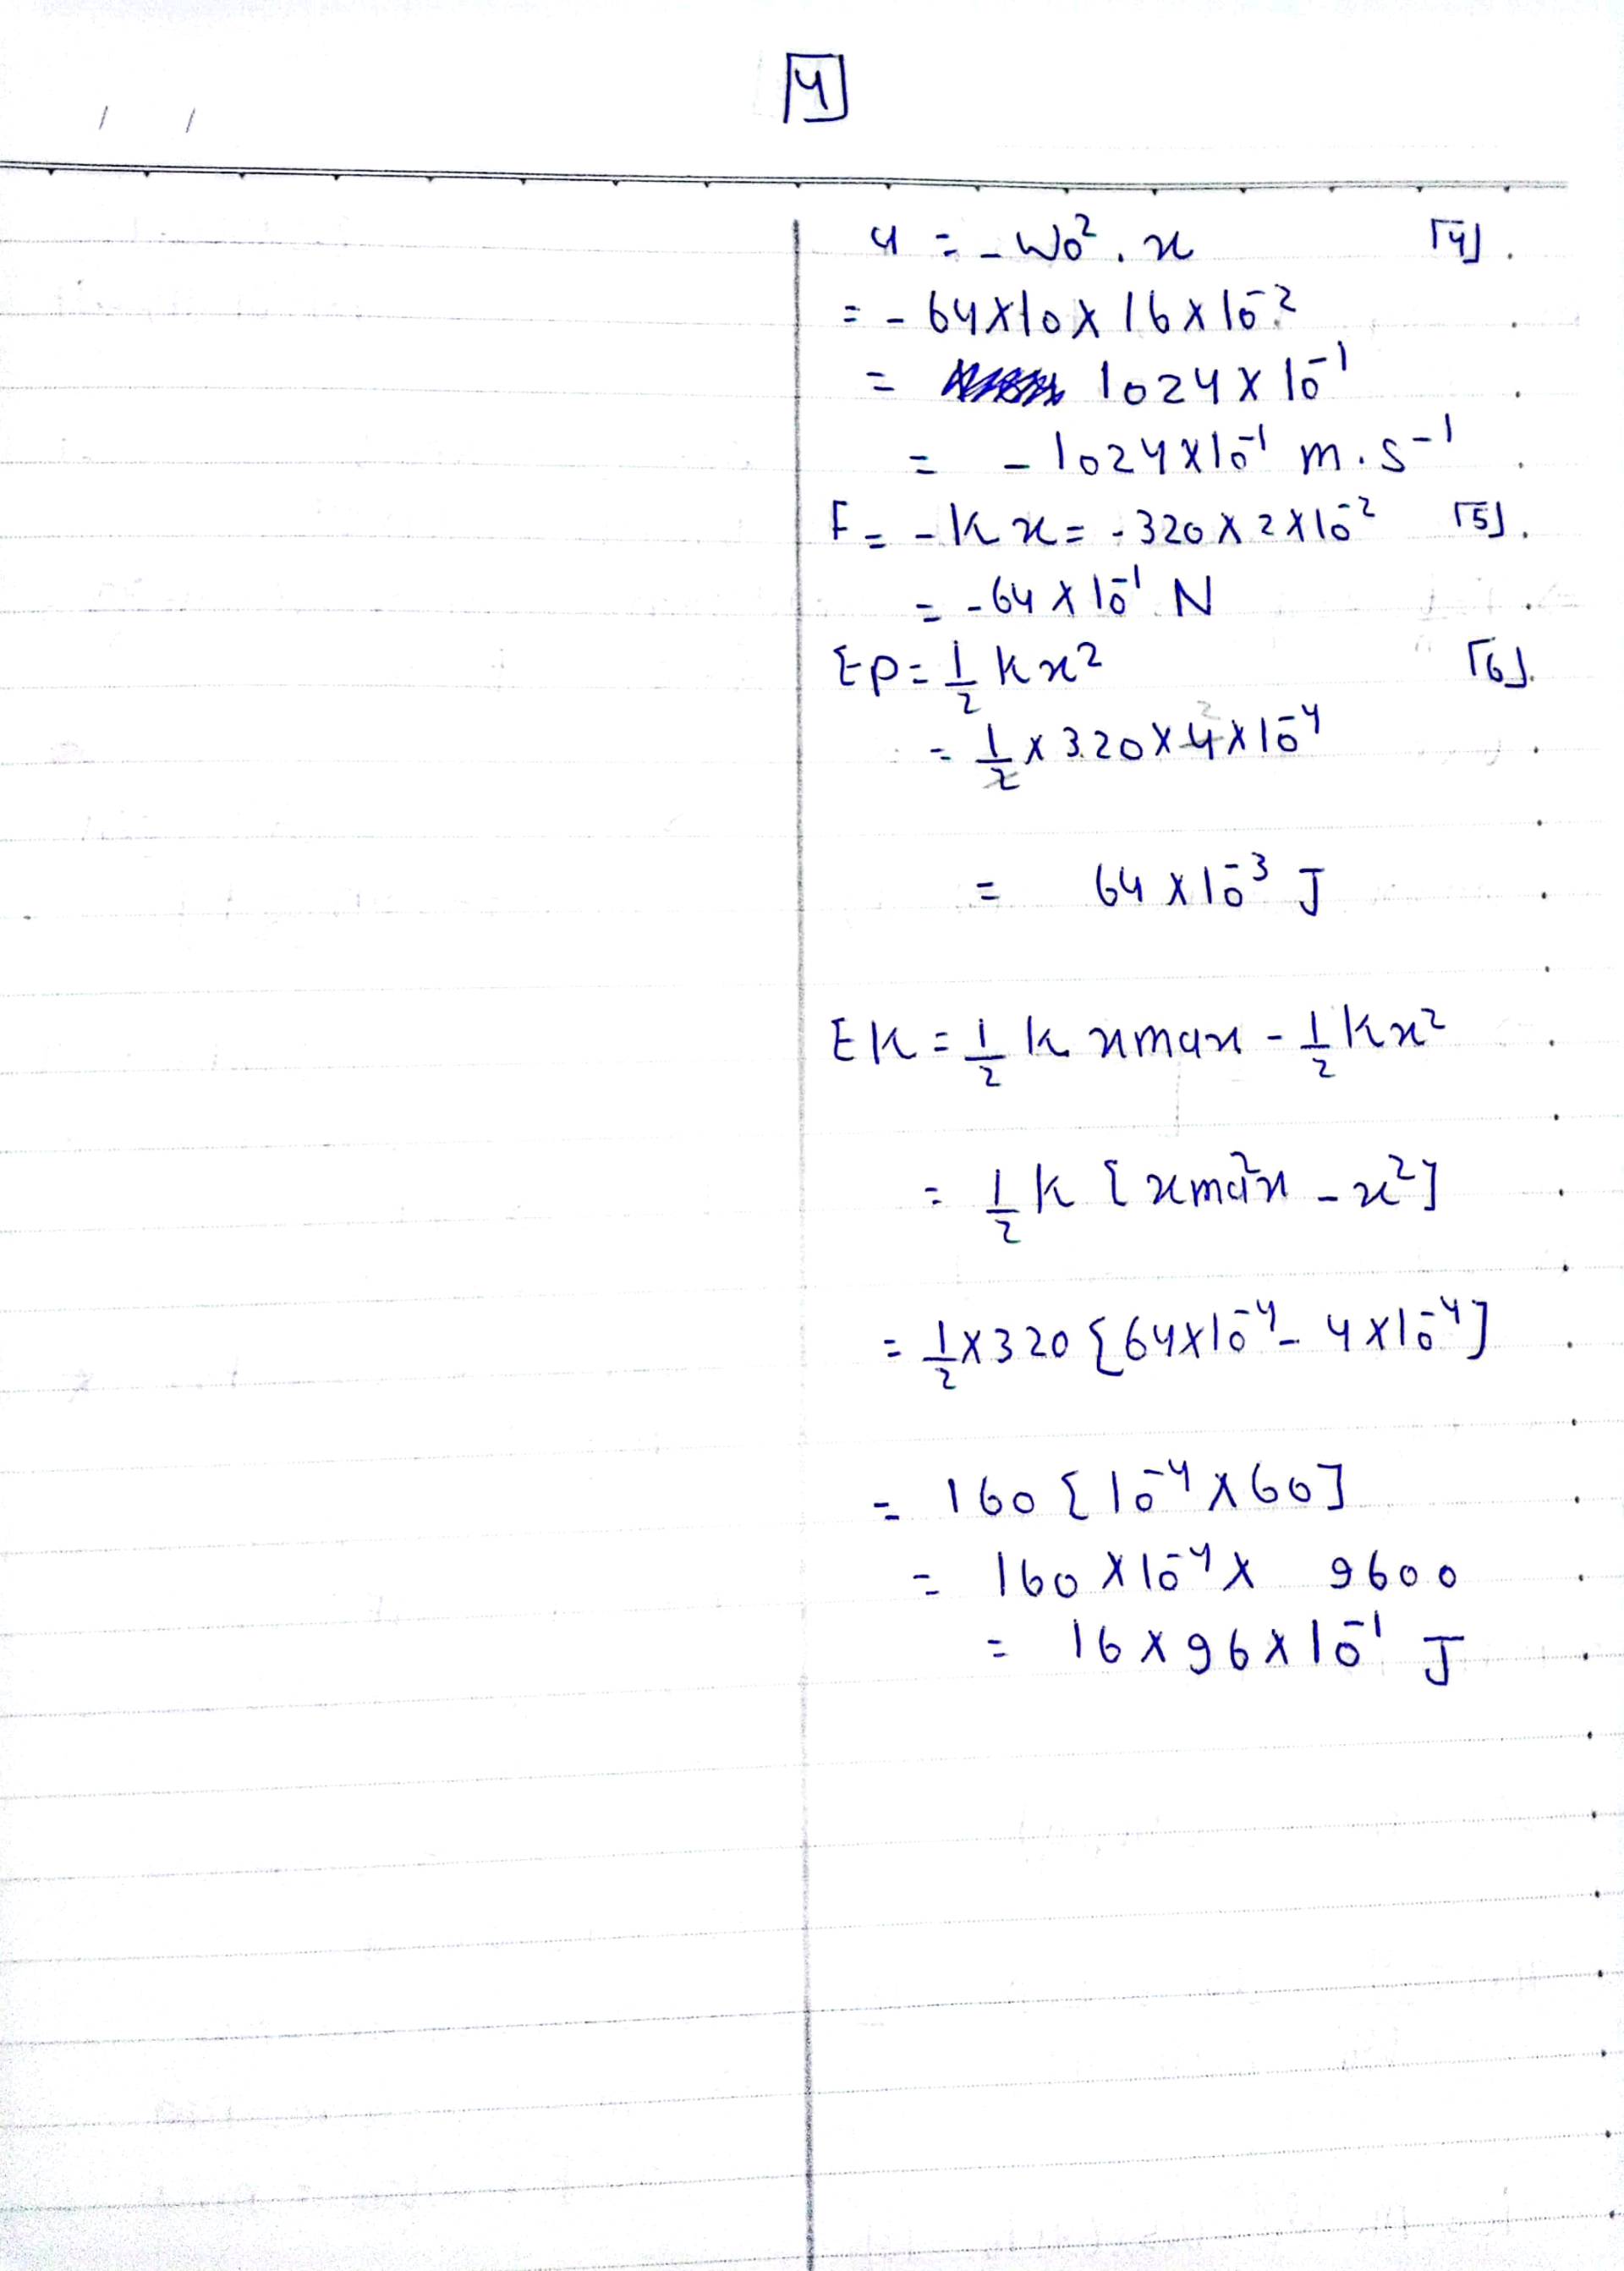 4
/ /
a = - ω0² . x [4] .
= - 64 × 10 × 16 × 10⁻²
= 1024 × 10⁻¹
= - 1024 × 10⁻¹ m . s⁻¹
F = - K x = - 320 × 2 × 10⁻² [5] .
= - 64 × 10⁻¹ N
EP = 1/2 k x² [6] .
= 1/2 × 320 × 4 × 10⁻⁴
= 64 × 10⁻³ J
EK = 1/2 k xmax - 1/2 k x²
= 1/2 k [ xmax² - x² ]
= 1/2 × 320 [ 64 × 10⁻⁴ - 4 × 10⁻⁴ ]
= 160 [ 10⁻⁴ × 60 ]
= 160 × 10⁻⁴ × 9600
= 16 × 96 × 10⁻¹ J